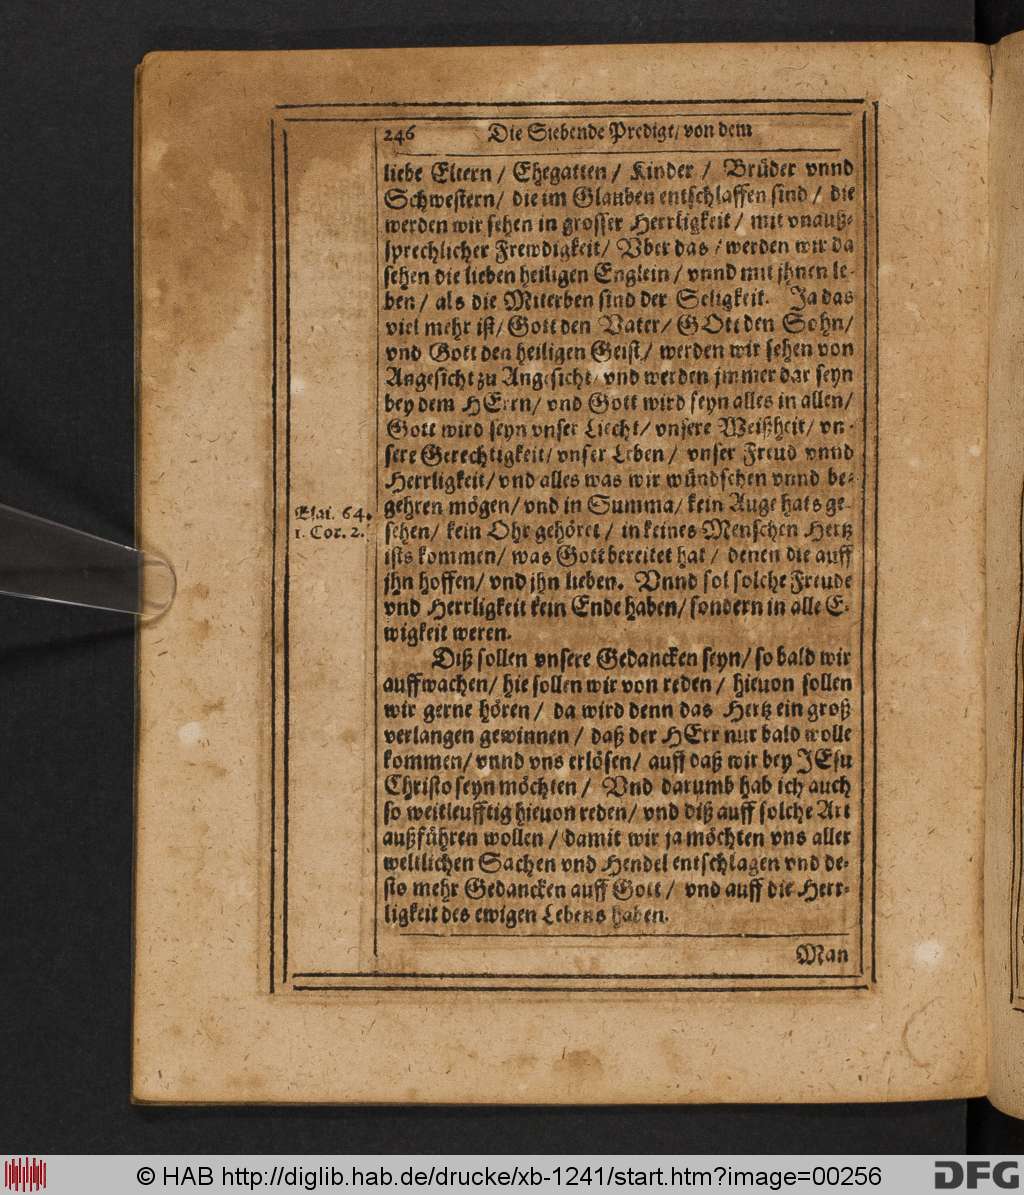 246 Die Siebende Predigt/ von dem
liebe Eltern / Ehegatten / Kinder / Brüder vnnd
Schwestern/ die im Glauben entschlaffen sind / die
werden wir sehen in grosser Herrligkeit / mit vnauß-
sprechlicher Frewdigkeit/ Vber das / werden wir da
sehen die lieben heiligen Englein / vnnd mit jhnen le-
ben / als die Miterben sind der Seligkeit. Ja das
viel mehr ist/ Gott den Vater/ GOtt den Sohn/
vnd Gott den heiligen Geist / werden wir sehen von
Angesicht zu Angesicht/ vnd werden jmmerdar seyn
bey dem HErrn/ vnd Gott wird seyn alles in allen/
Gott wird seyn vnser Liecht/ vnsere Weißheit/ vn-
sere Gerechtigkeit/ vnser Leben / vnser Freud vnnd
Herrligkeit/ vnd alles was wir wündschen vnnd be-
gehren mögen/ vnd in Summa/ kein Auge hats ge-
Esai. 64.
sehen/ kein Ohr gehöret / in keines Menschen Hertz
1. Cor. 2.
ists kommen/ was Gott bereitet hat / denen die auff
jhn hoffen/ vnd jhn lieben. Vnnd sol solche Freude
vnd Herrligkeit kein Ende haben/ sondern in alle E-
wigkeit weren.
Diß sollen vnsere Gedancken seyn/ so bald wir
auffwachen/ hie sollen wir von reden / hieuon sollen
wir gerne hören / da wird denn das Hertz ein groß
verlangen gewinnen / daß der HErr nur bald wolle
kommen/ vnnd vns erlösen/ auff daß wir bey JEsu
Christo seyn möchten / Vnd darumb hab ich auch
so weitleufftig hieuon reden/ vnd diß auff solche Art
außführen wollen / damit wir ja möchten vns aller
weltlichen Sachen vnd Hendel entschlagen vnd de-
sto mehr Gedancken auff Gott / vnd auff die Herr-
ligkeit des ewigen Lebens haben.
Man
© HAB http://diglib.hab.de/drucke/xb-1241/start.htm?image=00256
DFG